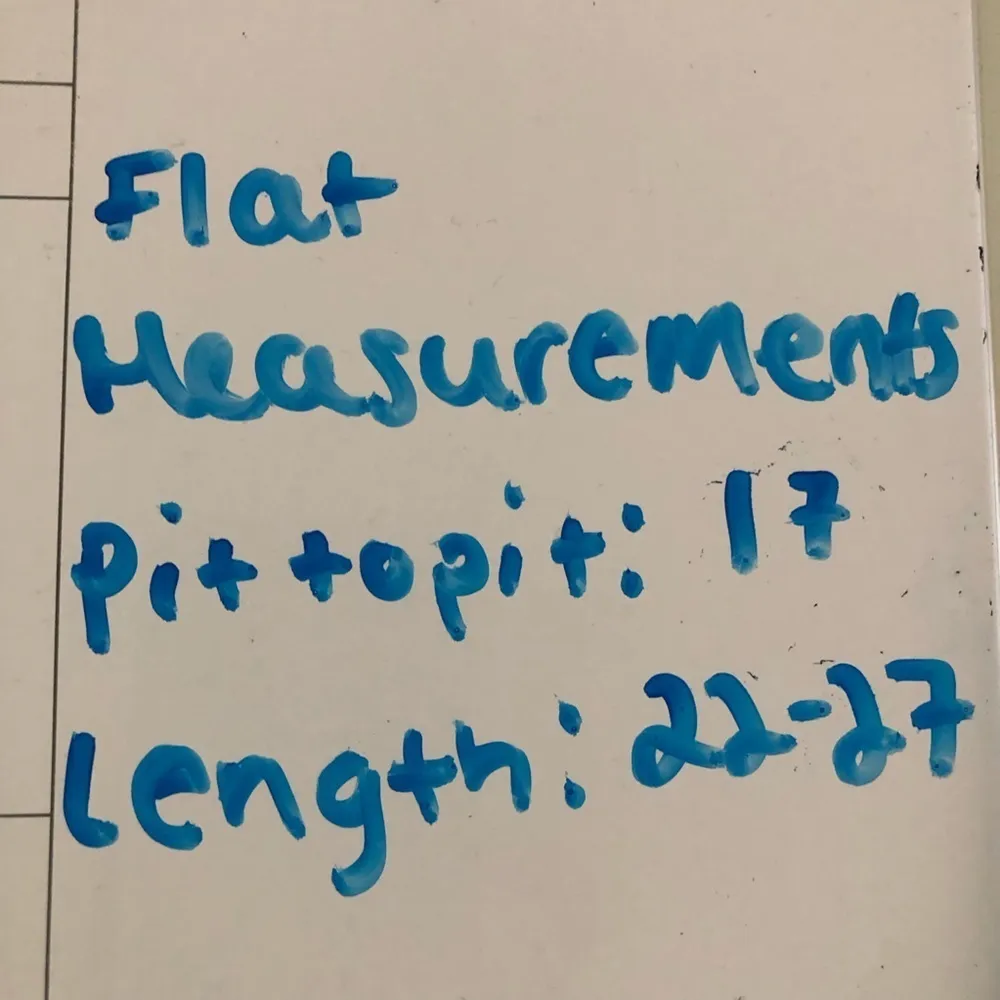 Flat
Measurements
pit to pit: 17
length: 22-27